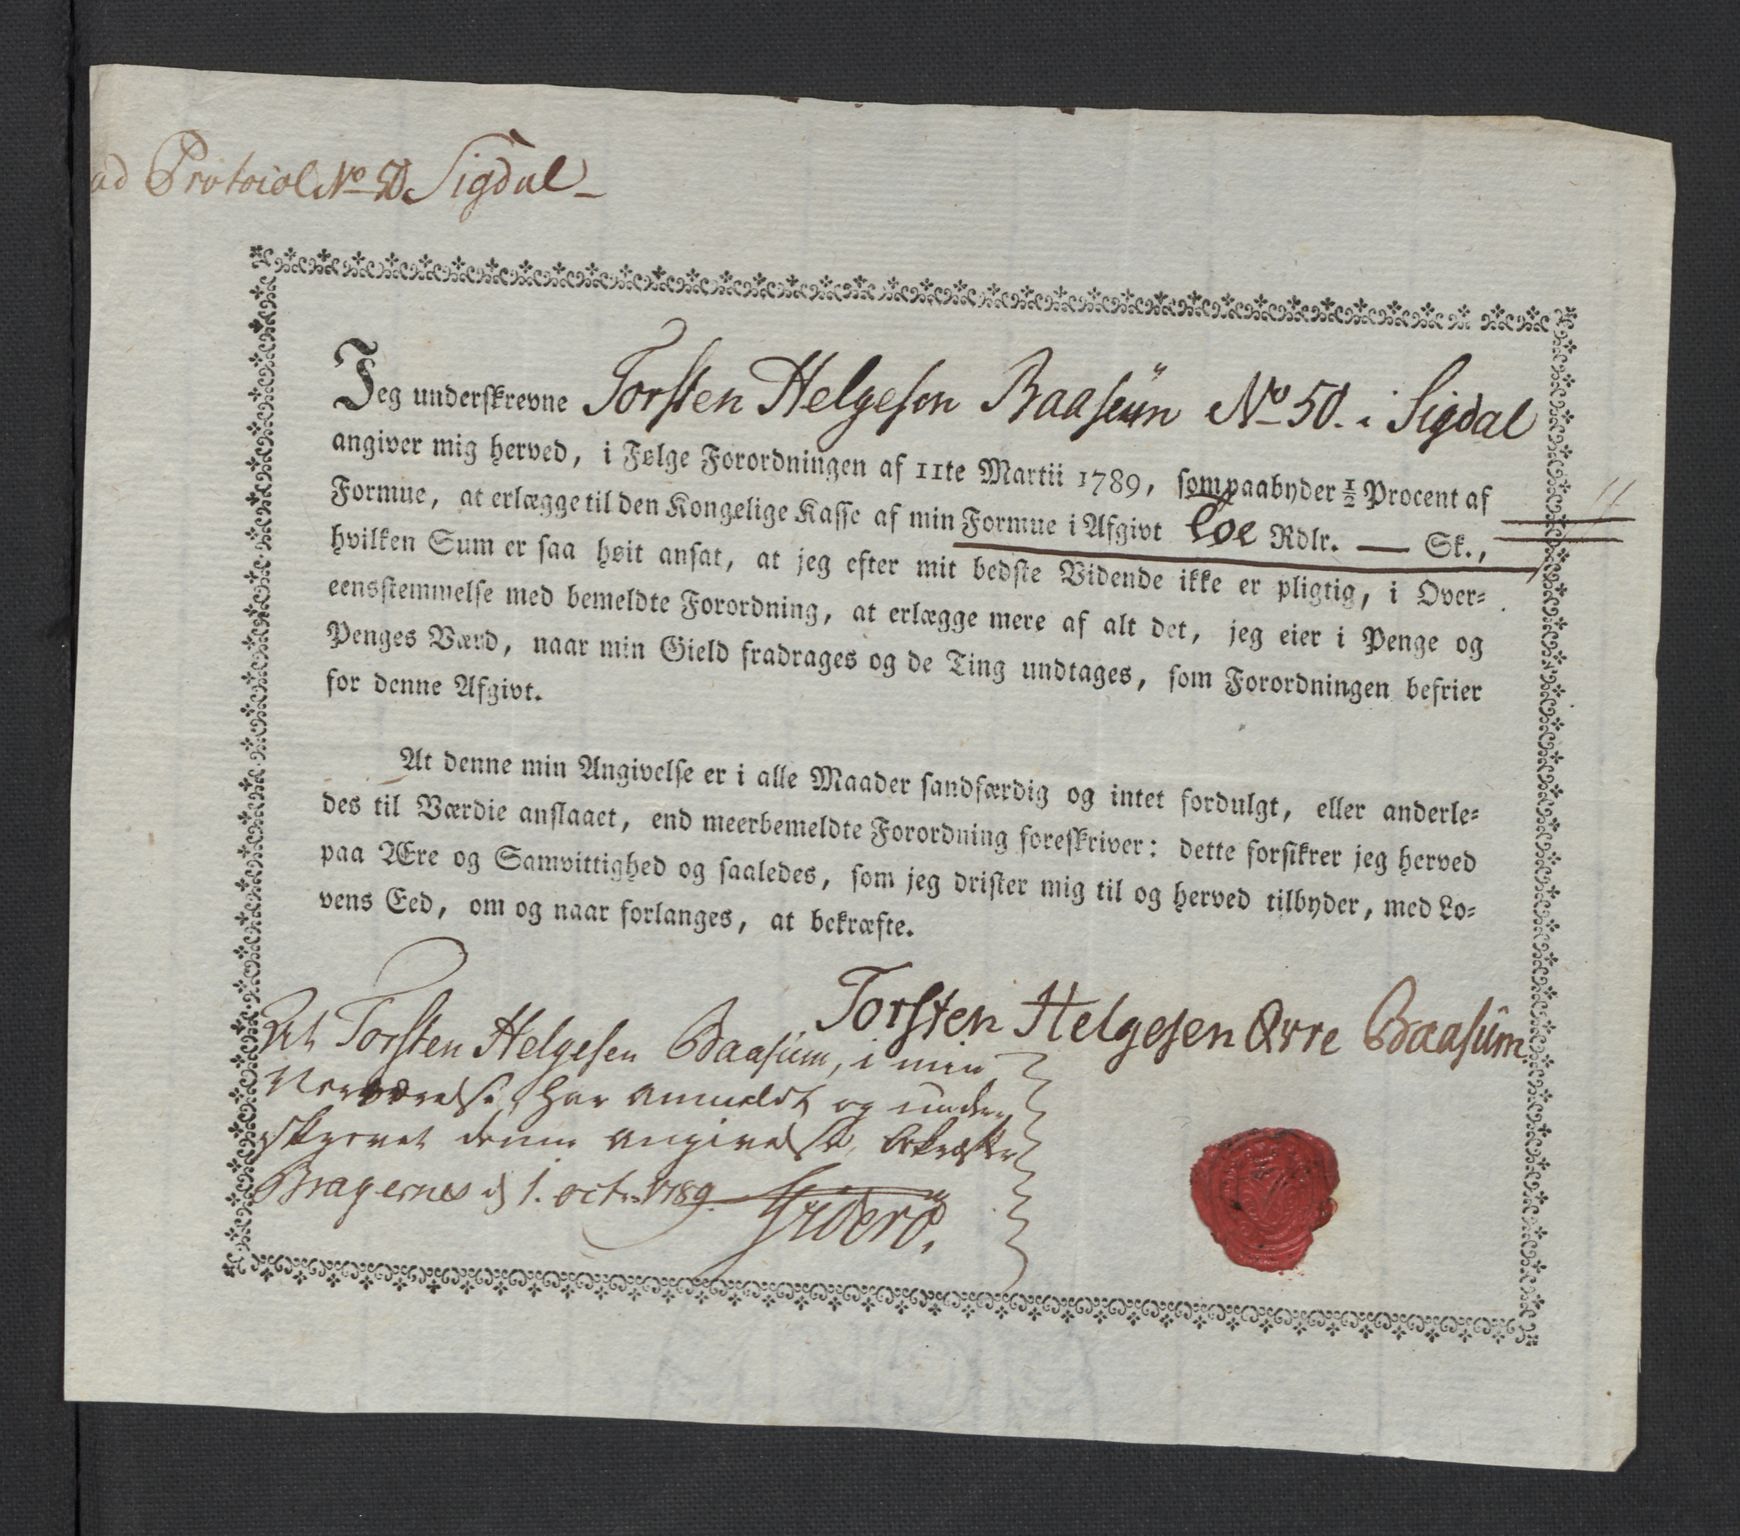 ad Protocol No 50 Sigdal
Jeg underskrevne Torsten Helgesen Baasüm No 50. i Sigdal
angiver mig herved, i Følge Forordningen af 11te Martii 1789, som paabyder ½ Procent af
Formue, at erlægge til den Kongelige Kasse af min Formue i Afgivt Rdlr. — Sk.,
hvilken Sum er saa høit ansat, at jeg efter mit bedste Vidende ikke er pligtig, i Over-
eensstemmelse med bemeldte Forordning, at erlægge mere af alt det, jeg eier i Penge og
Penges Værd, naar min Gield fradrages og de Ting undtages, som Forordningen befrier
for denne Afgivt.
At denne min Angivelse er i alle Maader sandfærdig og intet fordulgt, eller anderle-
des til Værdie anslaaet, end meerbemeldte Forordning foreskriver: dette forsikrer jeg herved
paa Ære og Samvittighed og saaledes, som jeg drister mig til og herved tilbyder, med Lo-
vens Eed, om og naar forlanges, at bekræfte.
Torsten Helgesen Øvre Baasüm
At Torsten Helgesen Baasüm, i min
Nærværelse, har anmeldt og under
skrevet denne angivelse, bekræfter
Bragernes d 1. octr. 1789.